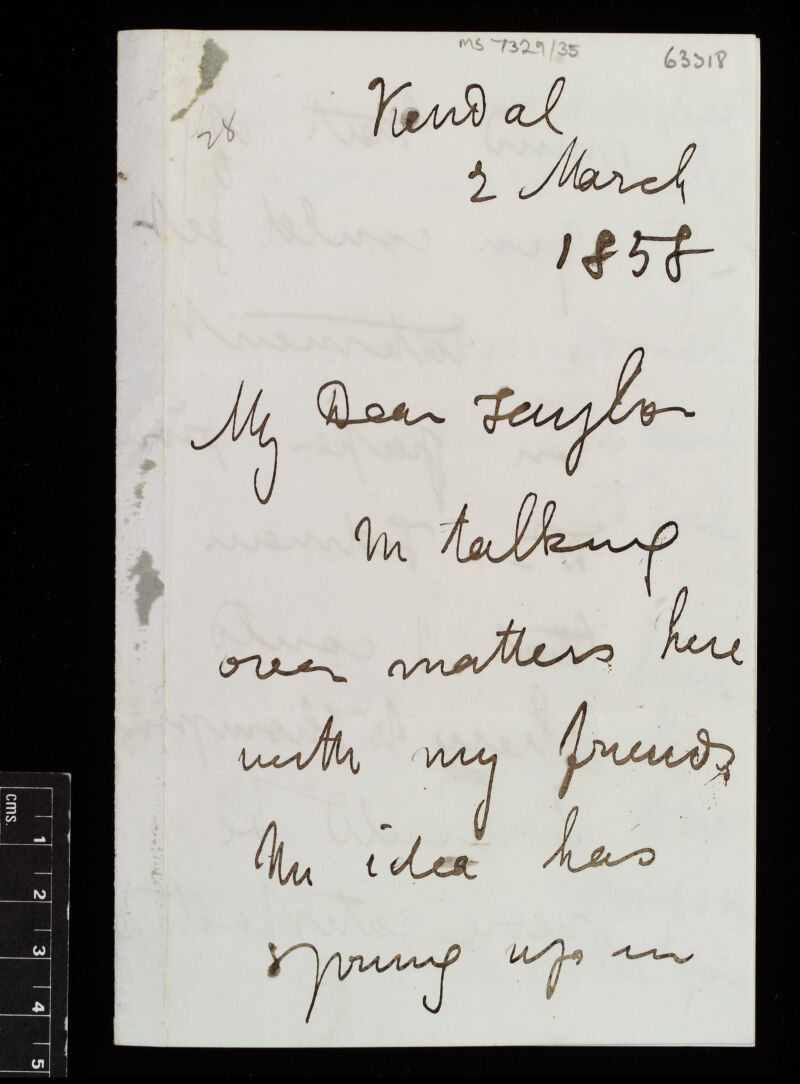 MS 7329/35
63318
28
Kendal
2 March
1858
My Dear Taylor
In talking
over matters here
with my friends
An idea has
sprung up in
cms.
1
2
3
4
5